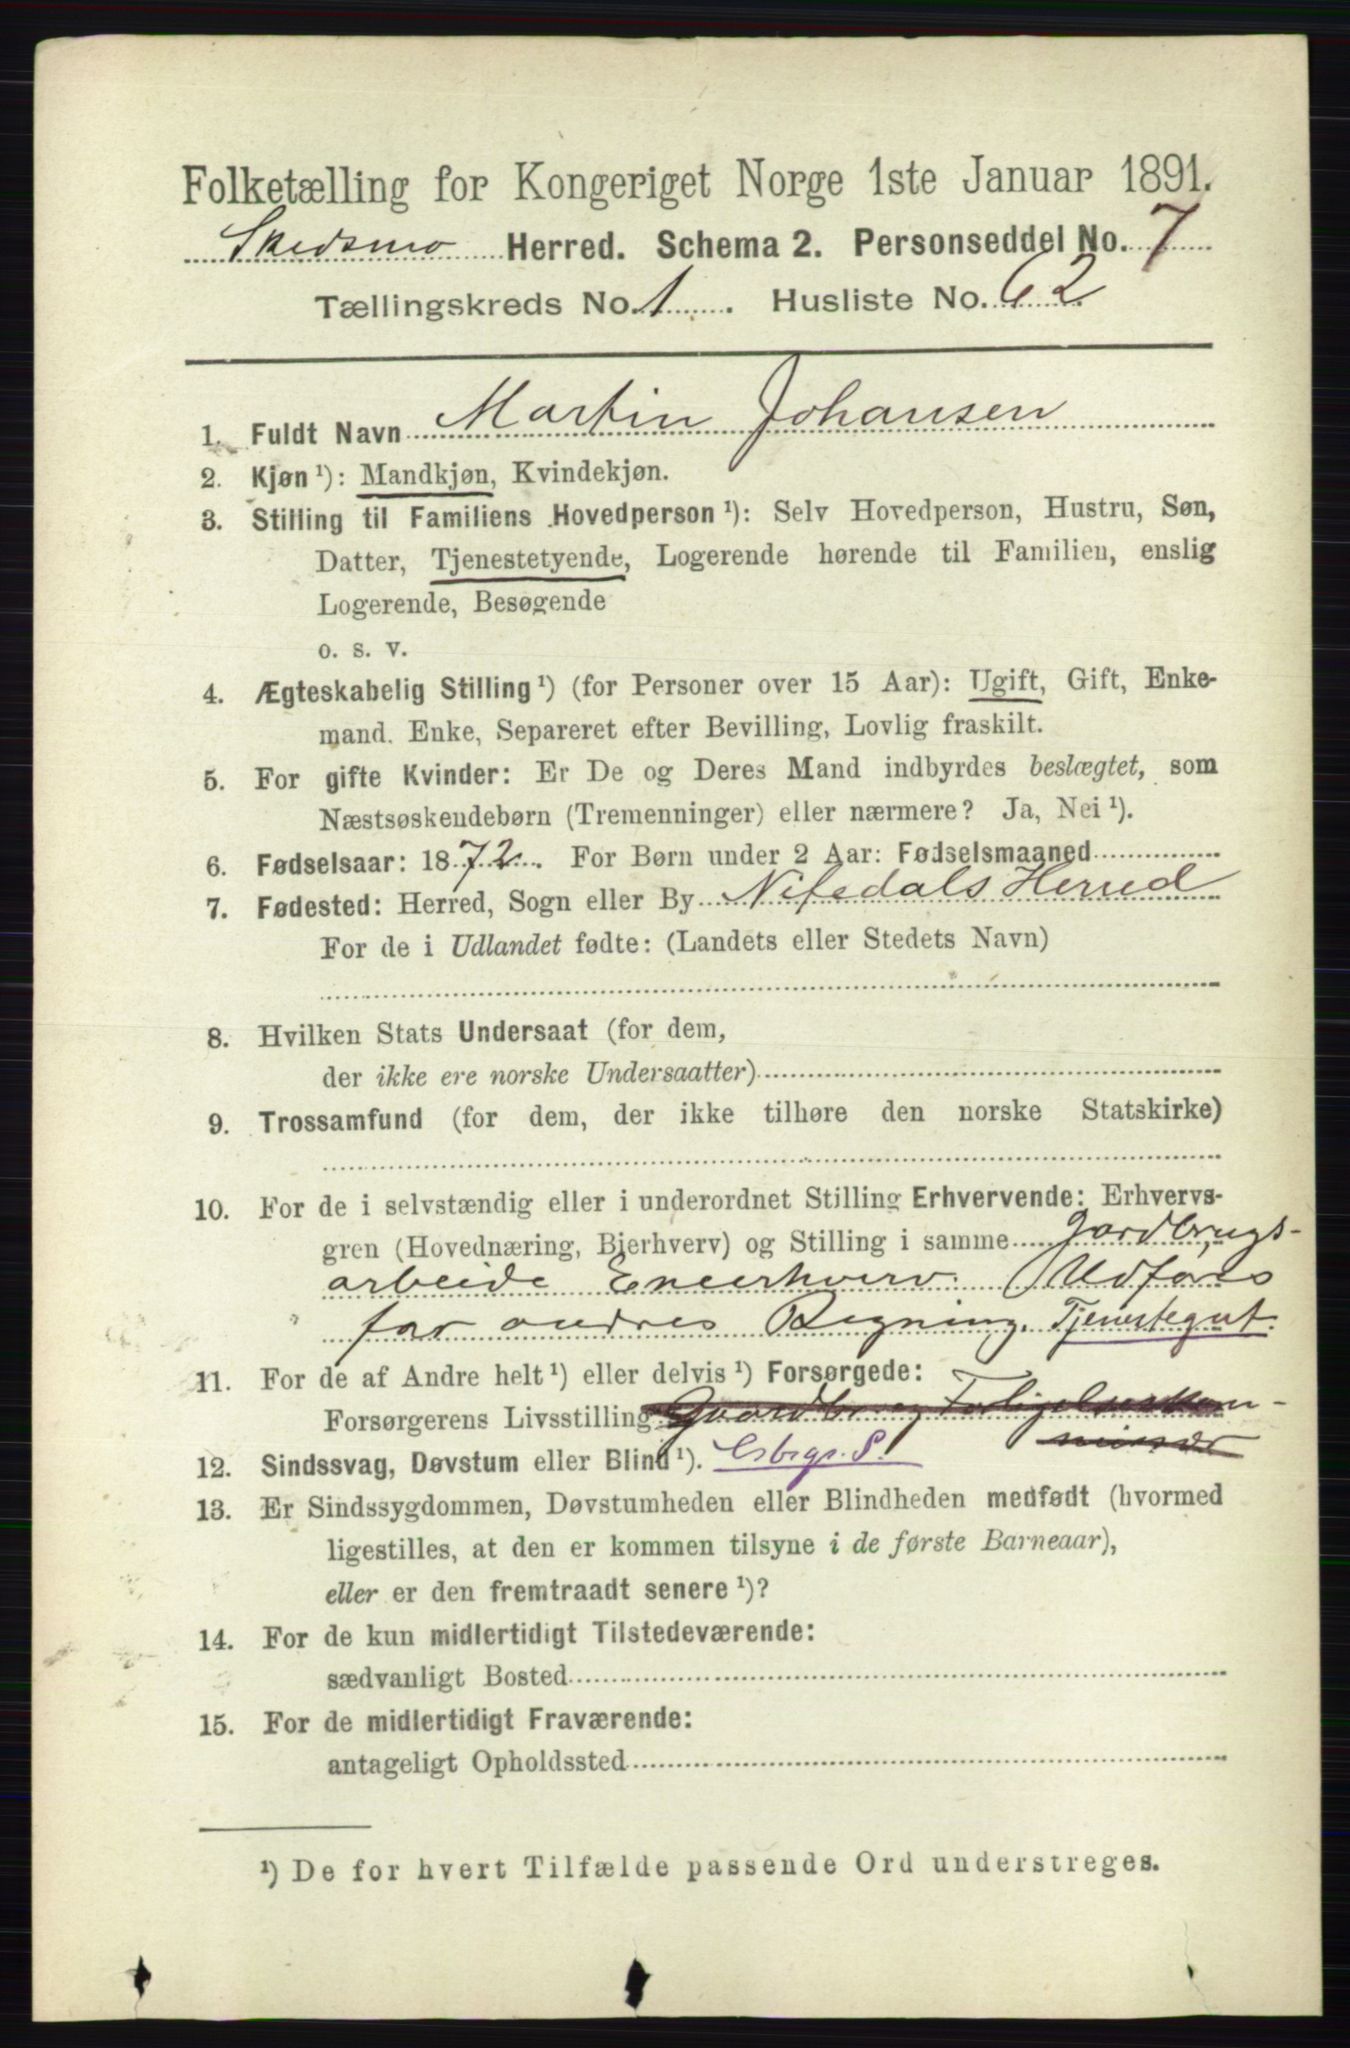 Folketælling for Kongeriget Norge 1ste Januar 1891.
Skedsmo Herred. Schema 2. Personseddel No. 7
Tællingskreds No. 1. Husliste No. 62
1. Fuldt Navn Martin Johansen
2. Kjøn ¹): Mandkjøn, Kvindekjøn.
3. Stilling til Familiens Hovedperson ¹): Selv Hovedperson, Hustru, Søn,
Datter, Tjenestetyende, Logerende hørende til Familien, enslig
Logerende, Besøgende
o. s. v.
4. Ægteskabelig Stilling ¹) (for Personer over 15 Aar): Ugift, Gift, Enke-
mand. Enke, Separeret efter Bevilling, Lovlig fraskilt.
5. For gifte Kvinder: Er De og Deres Mand indbyrdes beslægtet, som
Næstsøskendebørn (Tremenninger) eller nærmere? Ja, Nei ¹).
6. Fødselsaar: 1872. For Børn under 2 Aar: Fødselsmaaned
7. Fødested: Herred, Sogn eller By Nitedals Herred
For de i Udlandet fødte: (Landets eller Stedets Navn)
8. Hvilken Stats Undersaat (for dem,
der ikke ere norske Undersaatter)
9. Trossamfund (for dem, der ikke tilhøre den norske Statskirke)
10. For de i selvstændig eller i underordnet Stilling Erhvervende: Erhvervs-
gren (Hovednæring, Bierhverv) og Stilling i samme Gardbrugs-
arbeide Eneerhverv. Udføres
for andres Regning. Tjenestegut.
11. For de af Andre helt ¹) eller delvis ¹) Forsørgede:
Forsørgerens Livsstilling Gaardbr og Forligelseskom-
missær
12. Sindssvag, Døvstum eller Blind ¹).
13. Er Sindssygdommen, Døvstumheden eller Blindheden medfødt (hvormed
ligestilles, at den er kommen tilsyne i de første Barneaar),
eller er den fremtraadt senere ¹)?
14. For de kun midlertidigt Tilstedeværende:
sædvanligt Bosted
15. For de midlertidigt Fraværende:
antageligt Opholdssted
¹) De for hvert Tilfælde passende Ord understreges.